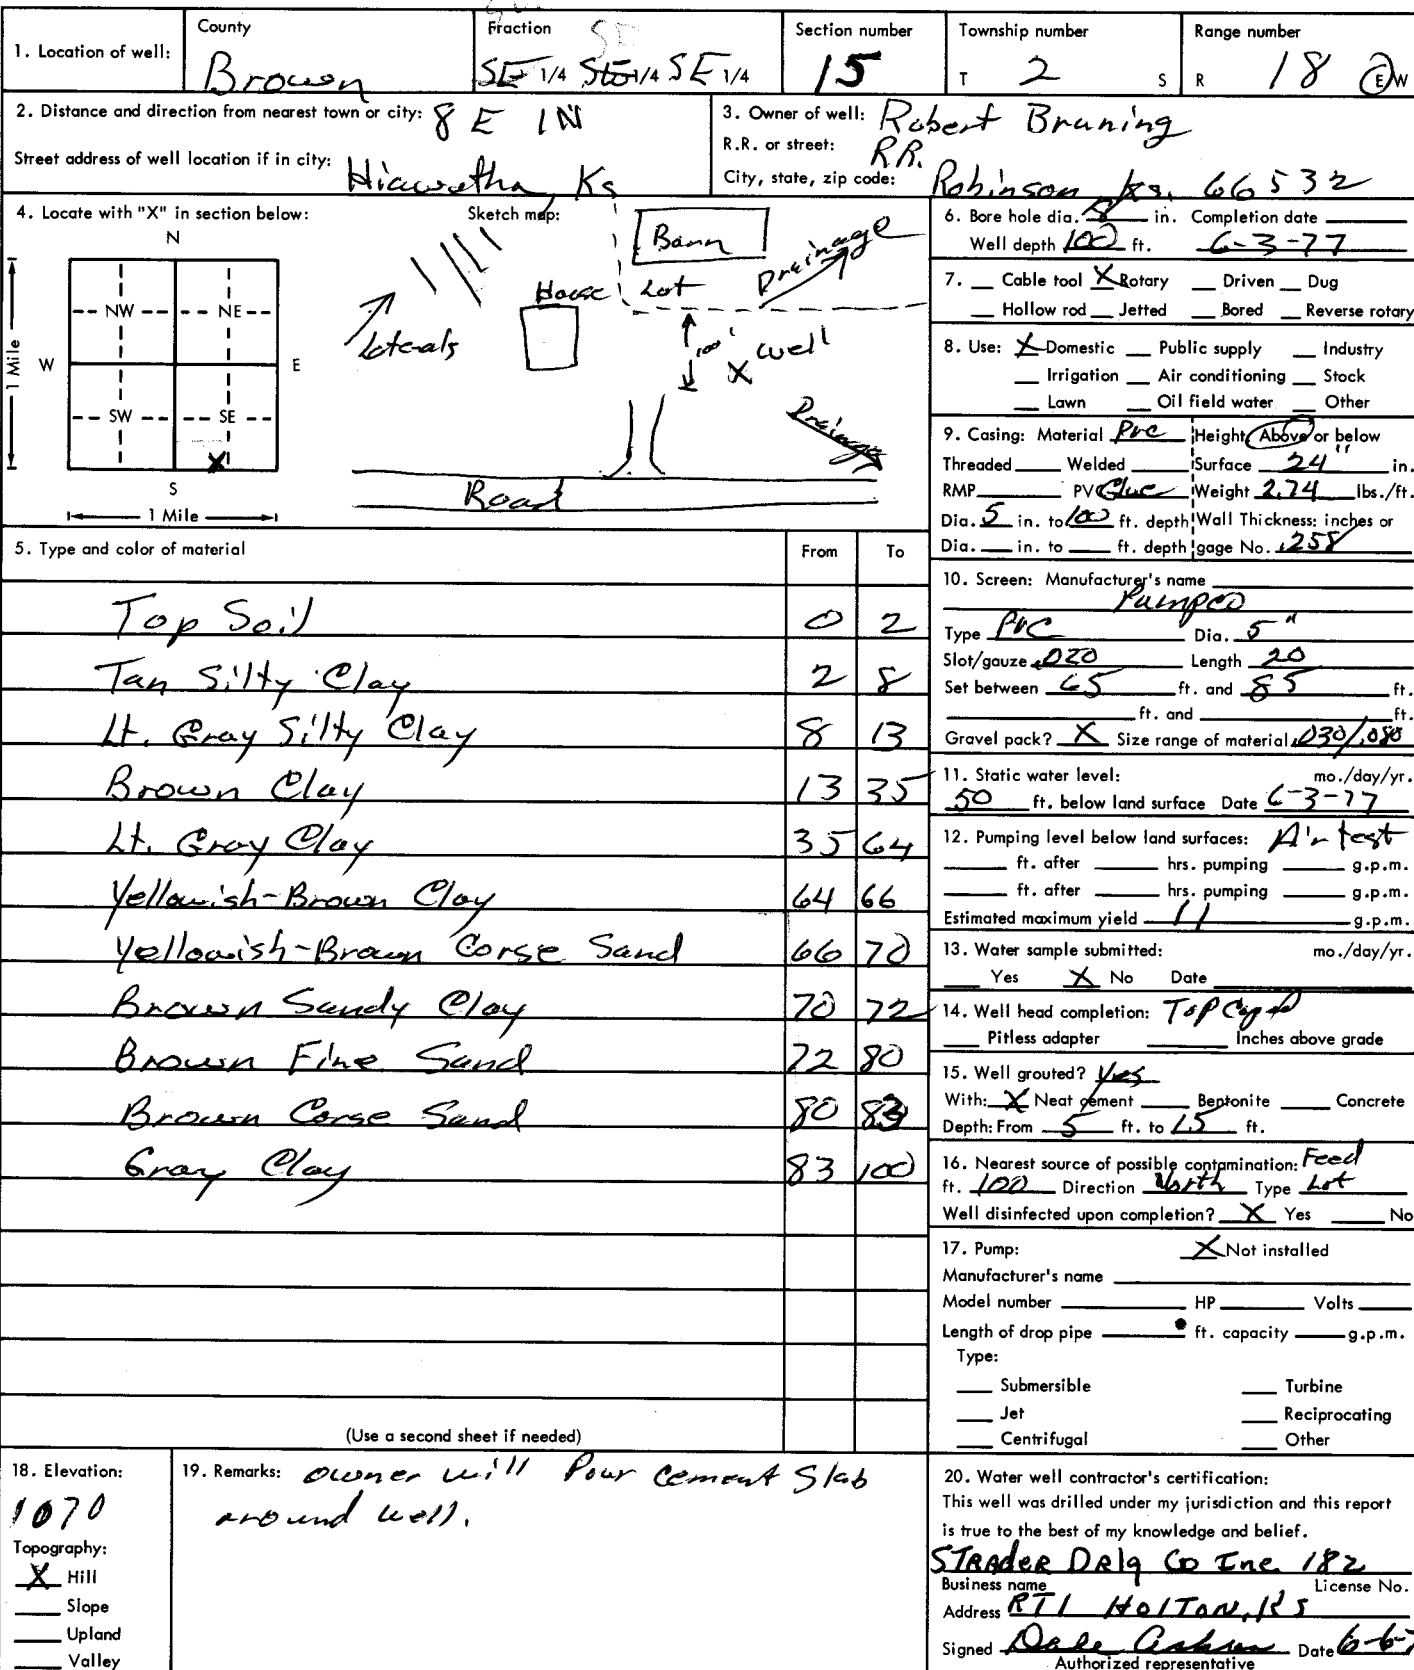 1. Location of well: County Brown Fraction SE 1/4 1/4 SE 1/4 Section number 15 Township number T 2 S Range number R 18 E W
2. Distance and direction from nearest town or city: 8 E 1N
Street address of well location if in city: Hiawatha Ks
3. Owner of well: Robert Bruning
R.R. or street: RR.
City, state, zip code: Robinson Ks. 66532
4. Locate with "X" in section below:
N
NW NE
W E
SW SE
X
S
1 Mile
1 Mile
Sketch map:
Barn
Drainage
House Lot
Laterals
100' X well
Drainage
Road
5. Type and color of material From To
Top Soil 0 2
Tan Silty Clay 2 8
Lt. Gray Silty Clay 8 13
Brown Clay 13 35
Lt. Gray Clay 35 64
Yellowish-Brown Clay 64 66
Yellowish-Brown Corse Sand 66 70
Brown Sandy Clay 70 72
Brown Fine Sand 72 80
Brown Corse Sand 80 83
Gray Clay 83 100
(Use a second sheet if needed)
6. Bore hole dia. 8 in. Completion date
Well depth 100 ft. 6-3-77
7. Cable tool X Rotary Driven Dug
Hollow rod Jetted Bored Reverse rotary
8. Use: X Domestic Public supply Industry
Irrigation Air conditioning Stock
Lawn Oil field water Other
9. Casing: Material PVC Height Above or below
Threaded Welded Surface 24" in.
RMP PVC Glue Weight 2.74 lbs./ft.
Dia. 5 in. to 100 ft. depth Wall Thickness: inches or
Dia. in. to ft. depth gage No. .258
10. Screen: Manufacturer's name
Pumpco
Type PVC Dia. 5"
Slot/gauze .020 Length 20
Set between 65 ft. and 85 ft.
ft. and ft.
Gravel pack? X Size range of material .030/.080
11. Static water level: mo./day/yr.
50 ft. below land surface Date 6-3-77
12. Pumping level below land surfaces: Air test
ft. after hrs. pumping g.p.m.
ft. after hrs. pumping g.p.m.
Estimated maximum yield 11 g.p.m.
13. Water sample submitted: mo./day/yr.
Yes X No Date
14. Well head completion: Top
Pitless adapter Inches above grade
15. Well grouted? Yes
With: X Neat cement Bentonite Concrete
Depth: From 5 ft. to 15 ft.
16. Nearest source of possible contamination: Feed
ft. 100 Direction North Type Lot
Well disinfected upon completion? X Yes No
17. Pump: X Not installed
Manufacturer's name
Model number HP Volts
Length of drop pipe ft. capacity g.p.m.
Type:
Submersible Turbine
Jet Reciprocating
Centrifugal Other
18. Elevation:
1070
Topography:
X Hill
Slope
Upland
Valley
19. Remarks: owner will Pour cement Slab
around well.
20. Water well contractor's certification:
This well was drilled under my jurisdiction and this report
is true to the best of my knowledge and belief.
STRADER DRlg Co Inc. 182
Business name License No.
Address RT1 HOLTON, KS
Signed Dale Date 6-6-7
Authorized representative